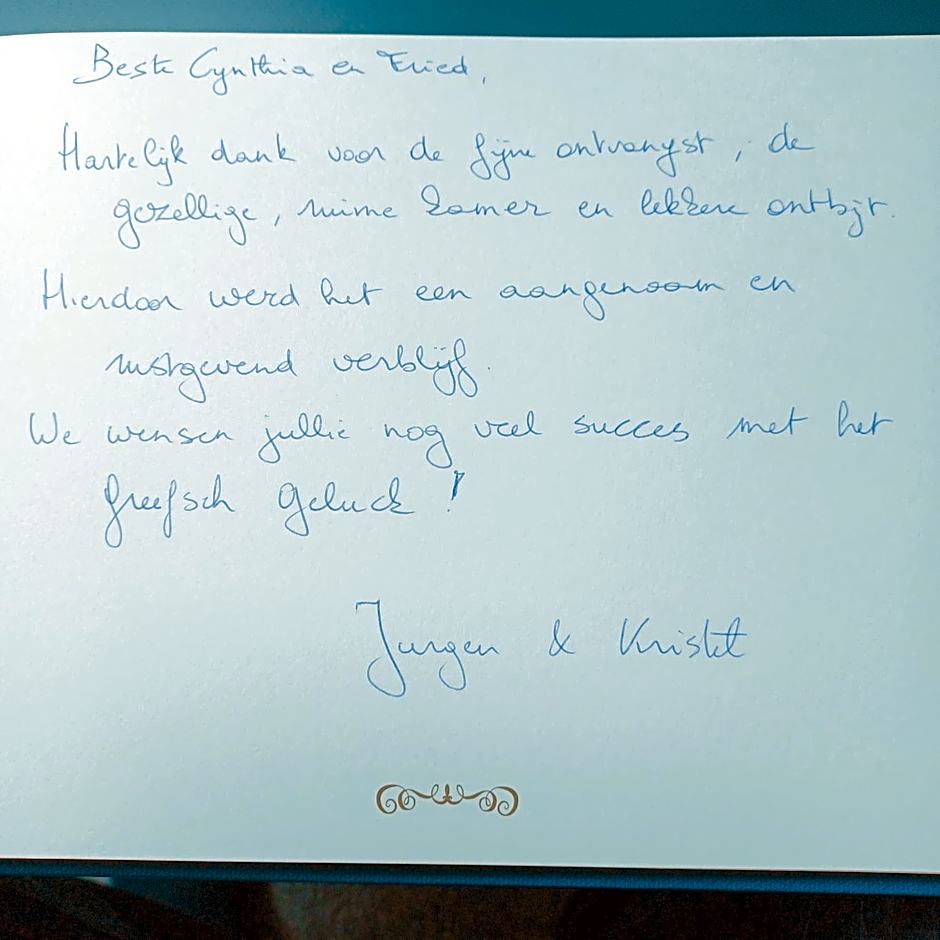 Beste Cynthia en Fried,
Hartelijk dank voor de fijne ontvangst, de
gezellige, ruime kamer en lekkere ontbijt.
Hierdoor werd het een aangenaam en
rustgevend verblijf.
We wensen jullie nog veel succes met het
freefsch geluck!
Jurgen & Kristel